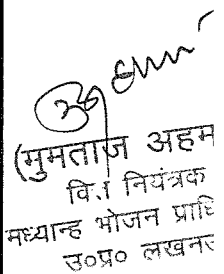 (मुमताज अहम
वित्त नियंत्रक
मध्यान्ह भोजन प्राधि
उ०प्र० लखनउ